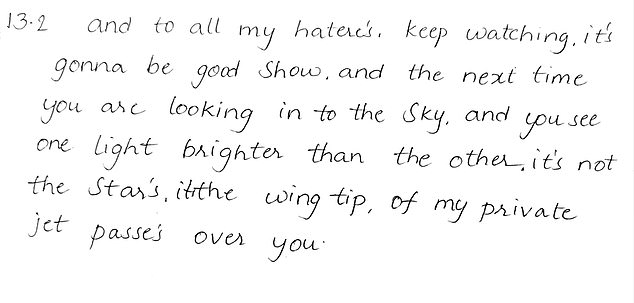 13.2 and to all my hater's. keep watching, it's
gonna be good show. and the next time
you are looking in to the sky, and you see
one light brighter than the other, it's not
the star's, it the wing tip, of my private
jet passe's over you.